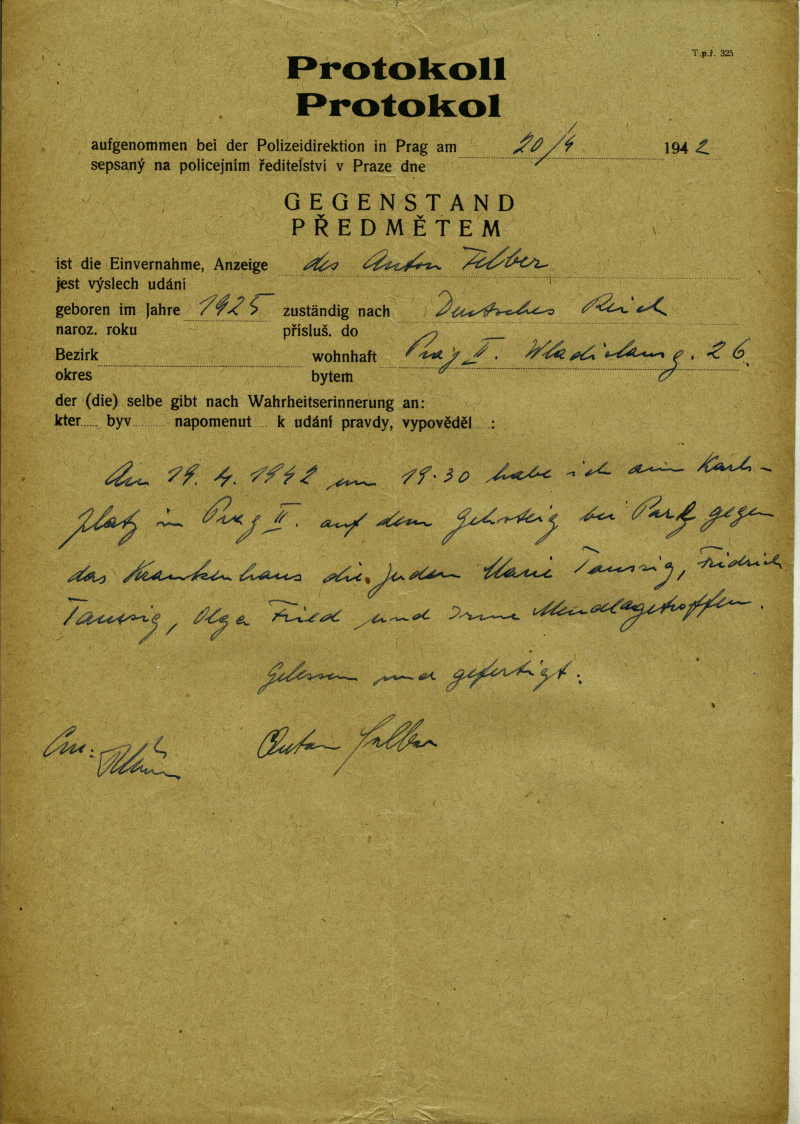 T.p.ř. 325
Protokoll
Protokol
aufgenommen bei der Polizeidirektion in Prag am 20/4 1942
sepsaný na policejním ředitelství v Praze dne
GEGENSTAND
PŘEDMĚTEM
ist die Einvernahme, Anzeige des Anton Felber
jest výslech udání
geboren im Jahre 1925 zuständig nach Deutsches Reich
naroz. roku přísluš. do
Bezirk wohnhaft Prag II. Wladislawg. 26.
okres bytem
der (die) selbe gibt nach Wahrheitserinnerung an:
kter..... byv napomenut k udání pravdy, vypověděl :
Am 19. 4. 1942 um 19.30 habe ich am Karls-
platz in Prag II. auf dem Gehsteig bei Park gegen
das Krankenhaus die Juden Marie Taussig, Fridrich
Taussig, Olga Fried und Irme Mendl getroffen.
Gelessen und gefertigt:
Anton Felber